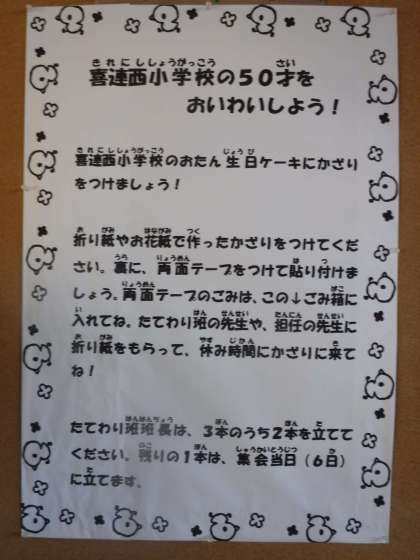 喜連西小学校の50才を
おいわいしよう！
喜連西小学校のおたん生日ケーキにかざり
をつけましょう！
折り紙やお花紙で作ったかざりをつけてくだ
さい。裏に、両面テープをつけて貼り付けま
しょう。両面テープのごみは、この↓ごみ箱に
入れてね。たてわり班の先生や、担任の先生に
折り紙をもらって、休み時間にかざりに来て
ね！
たてわり班班長は、3本のうち2本を立てて
ください。残りの1本は、集会当日（6日）
に立てます。